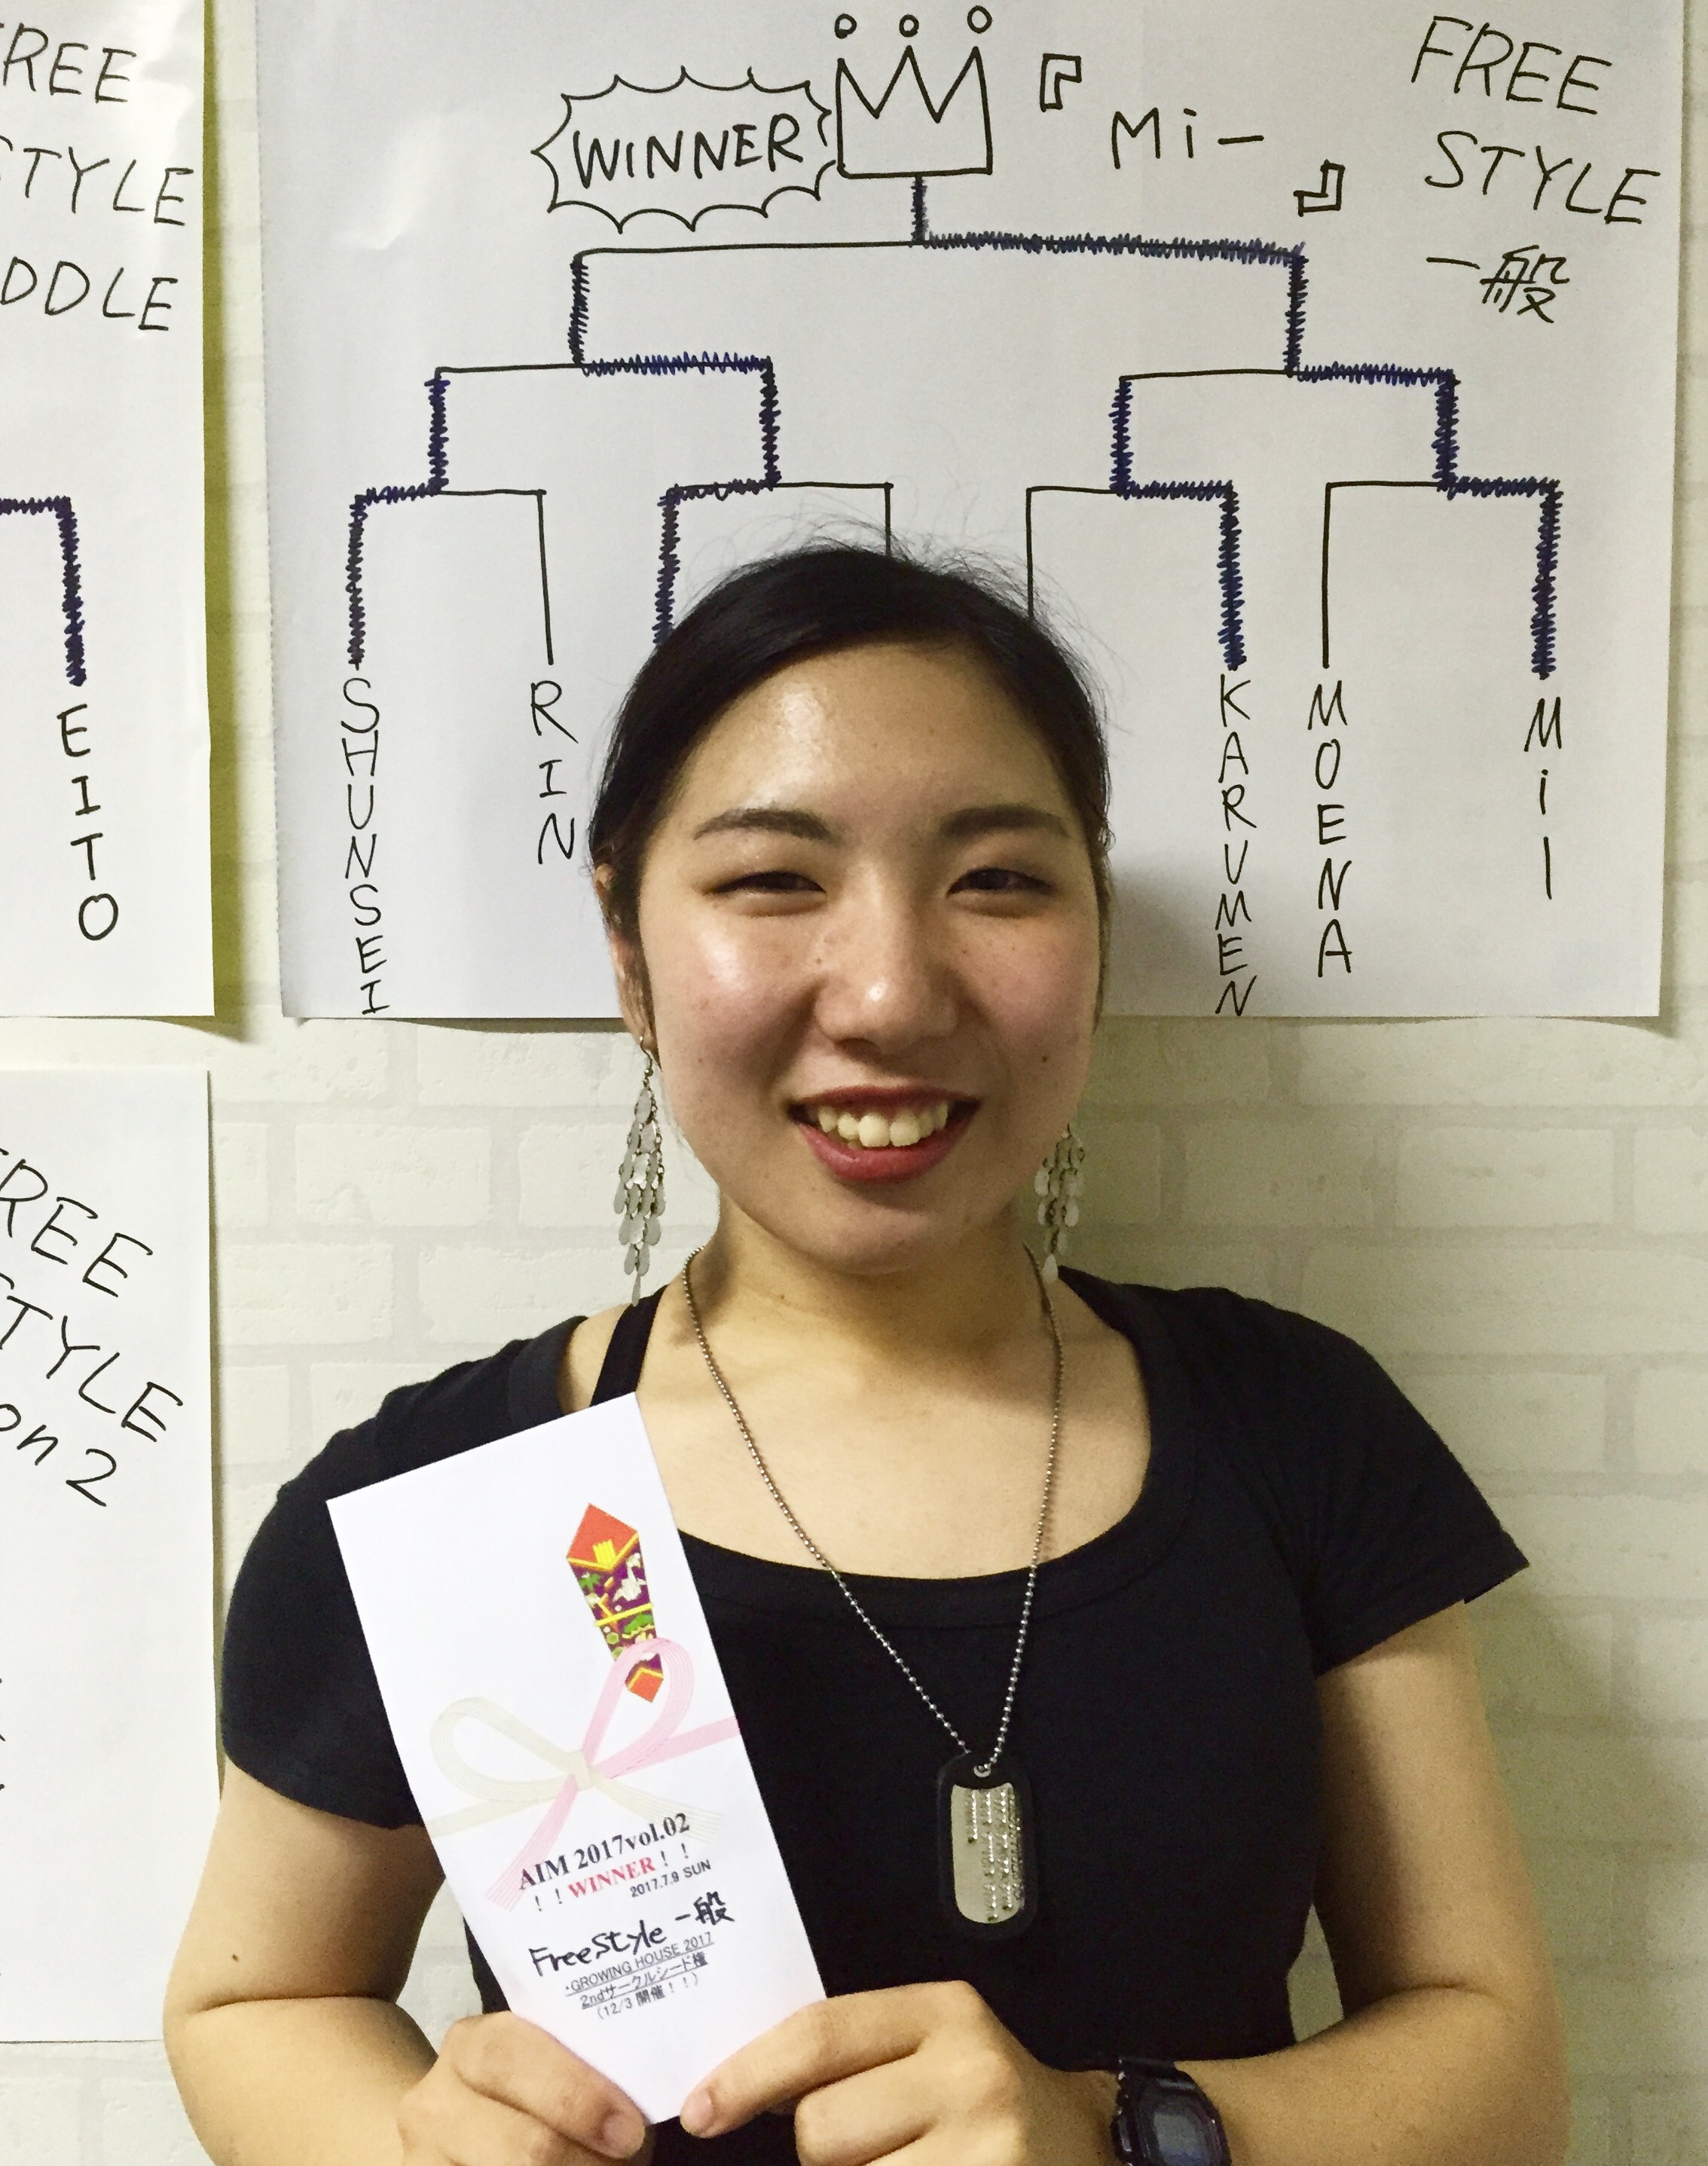 REE
STYLE
DDLE
EITO
WINNER
『Mi-』
FREE
STYLE
一般
SHUNSEI
RIN
KARUMEN
MOENA
Mi|
REE
STYLE
on 2
AIM 2017vol.02
！！WINNER！！
2017.7.9 SUN
FreeStyle 一般
・GROWING HOUSE 2017
2ndサークルシード権
(12/3 開催！！)